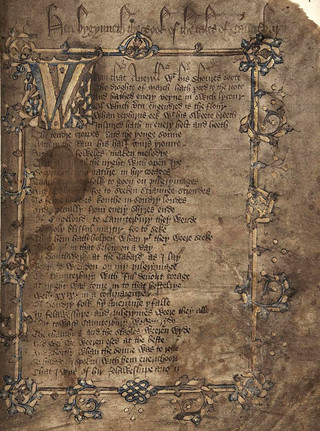 Here bygynneth the Book of the tales of Caunterbury
Whan that Aueryll wt his shoures soote
The droghte of march hath perced to the roote
And bathed euery veyne in swich lycour
Of which vertu engendred is the flour
Whan zephirus eek wt his sweete breeth
Inspired hath in euery holt and heeth
The tendre croppes and the yonge sonne
Hath in the Ram his half cours yronne
foweles maken melodye
al the nyght with open Iye
nature in hir corages
folk to goon on pilgrymages
for to seeken straunge strondes
To ferne halwes kouthe in sondry londes
And specially from euery shyres ende
Of Engelond to Caunterbury they wende
The holy blisful martir for to seke
That hem hath holpen whan þt they weere seeke
in that seson on a day
In Southwerk at the Tabard as I lay
Redy to wenden on my pilgrymage
To Caunterbury with ful deuout corage
At nyght was come in to that hostelrye
Wel xxix in a compaignye
Of sondry folk by auenture yfalle
In felaweshipe and pilgrymes weere they alle
That toward Caunterbury wolden ryde
The chambres and the stables weren wyde
And wel we weren esed at the beste
And shortly whan the sonne was to reste
So hadde I spoken with hem euerichoon
That I was of hir felaweshipe anoon